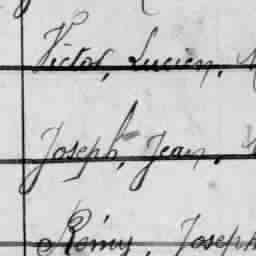 Victor, Lucien,
Joseph, Jean,
Rémy, Joseph